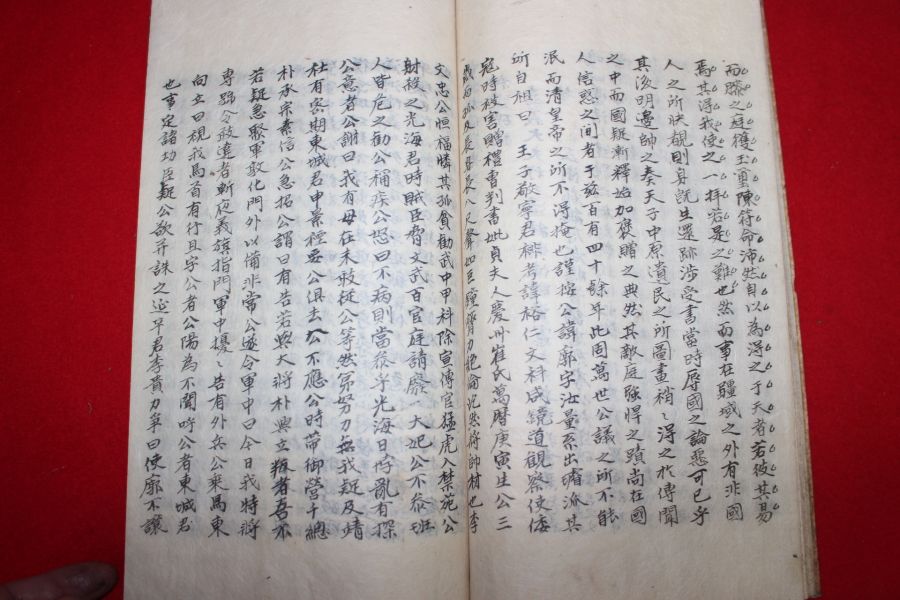 而滕之庭獲玉璽陳符命沛然自以為得之于天者若彼其易
焉其得我使之一拜若是之難也然而事在疆域之外有非國
人之所狀觀則身訖生還跡涉受書當時辱國之論惡可已乎
其後明邊帥之奏天子中原遺民之所圖畫稍〻得之於傳聞
之中而國疑漸釋始加褒贈之典然其敵庭強悍之蹟尚在國
人信惑之間者于玆百有四十餘年此固萬世公議之所不能
泯而清皇帝之所不得掩也謹按公諱廓字汝量系出璿派其
所自祖曰 王子敬寧君裶考諱裕仁文科咸鏡道觀察使倭
寇時被害贈禮曹判書妣貞夫人慶州崔氏萬曆庚寅生公三
歲而孤及長身長八尺聲如巨鐘膂力絶倫沉然將帥材也李
文忠公恒福憐其孤貧勸武中甲科除宣傳官猛虎入禁苑公
射殺之光海君時賊臣脅文武百官庭請廢 大妃公不參班
人皆危之勸公稱疾公怒曰不病則當參乎光海日悖亂有探
公意者公謝曰我有母在未敢從公等然第努力無我疑及靖
社有密期東城君申景禋要公俱去公不應公時帶御營千總
朴承宗素信公急招公謂曰有告若與大將朴興立叛者吾不
若疑急聚軍敦化門外以備非常公遂令軍中曰今日我特將
專號令敢違者斬夜義旗指門軍中擾〻告有外兵公乘馬東
向立曰視我馬首有行且字公者公陽為不聞呼公者東城君
也事定諸功臣疑公欲并誅之延平君李貴力爭曰使廓不讓